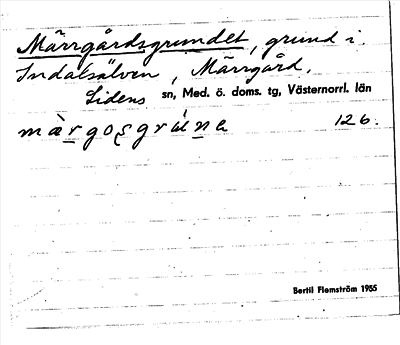 Märrgårdsgrundet, grund i
Indalsälven, Märrgård,
Lidens sn, Med. ö. doms. tg, Västernorrl. län
126.
Bertil Flemström 1955